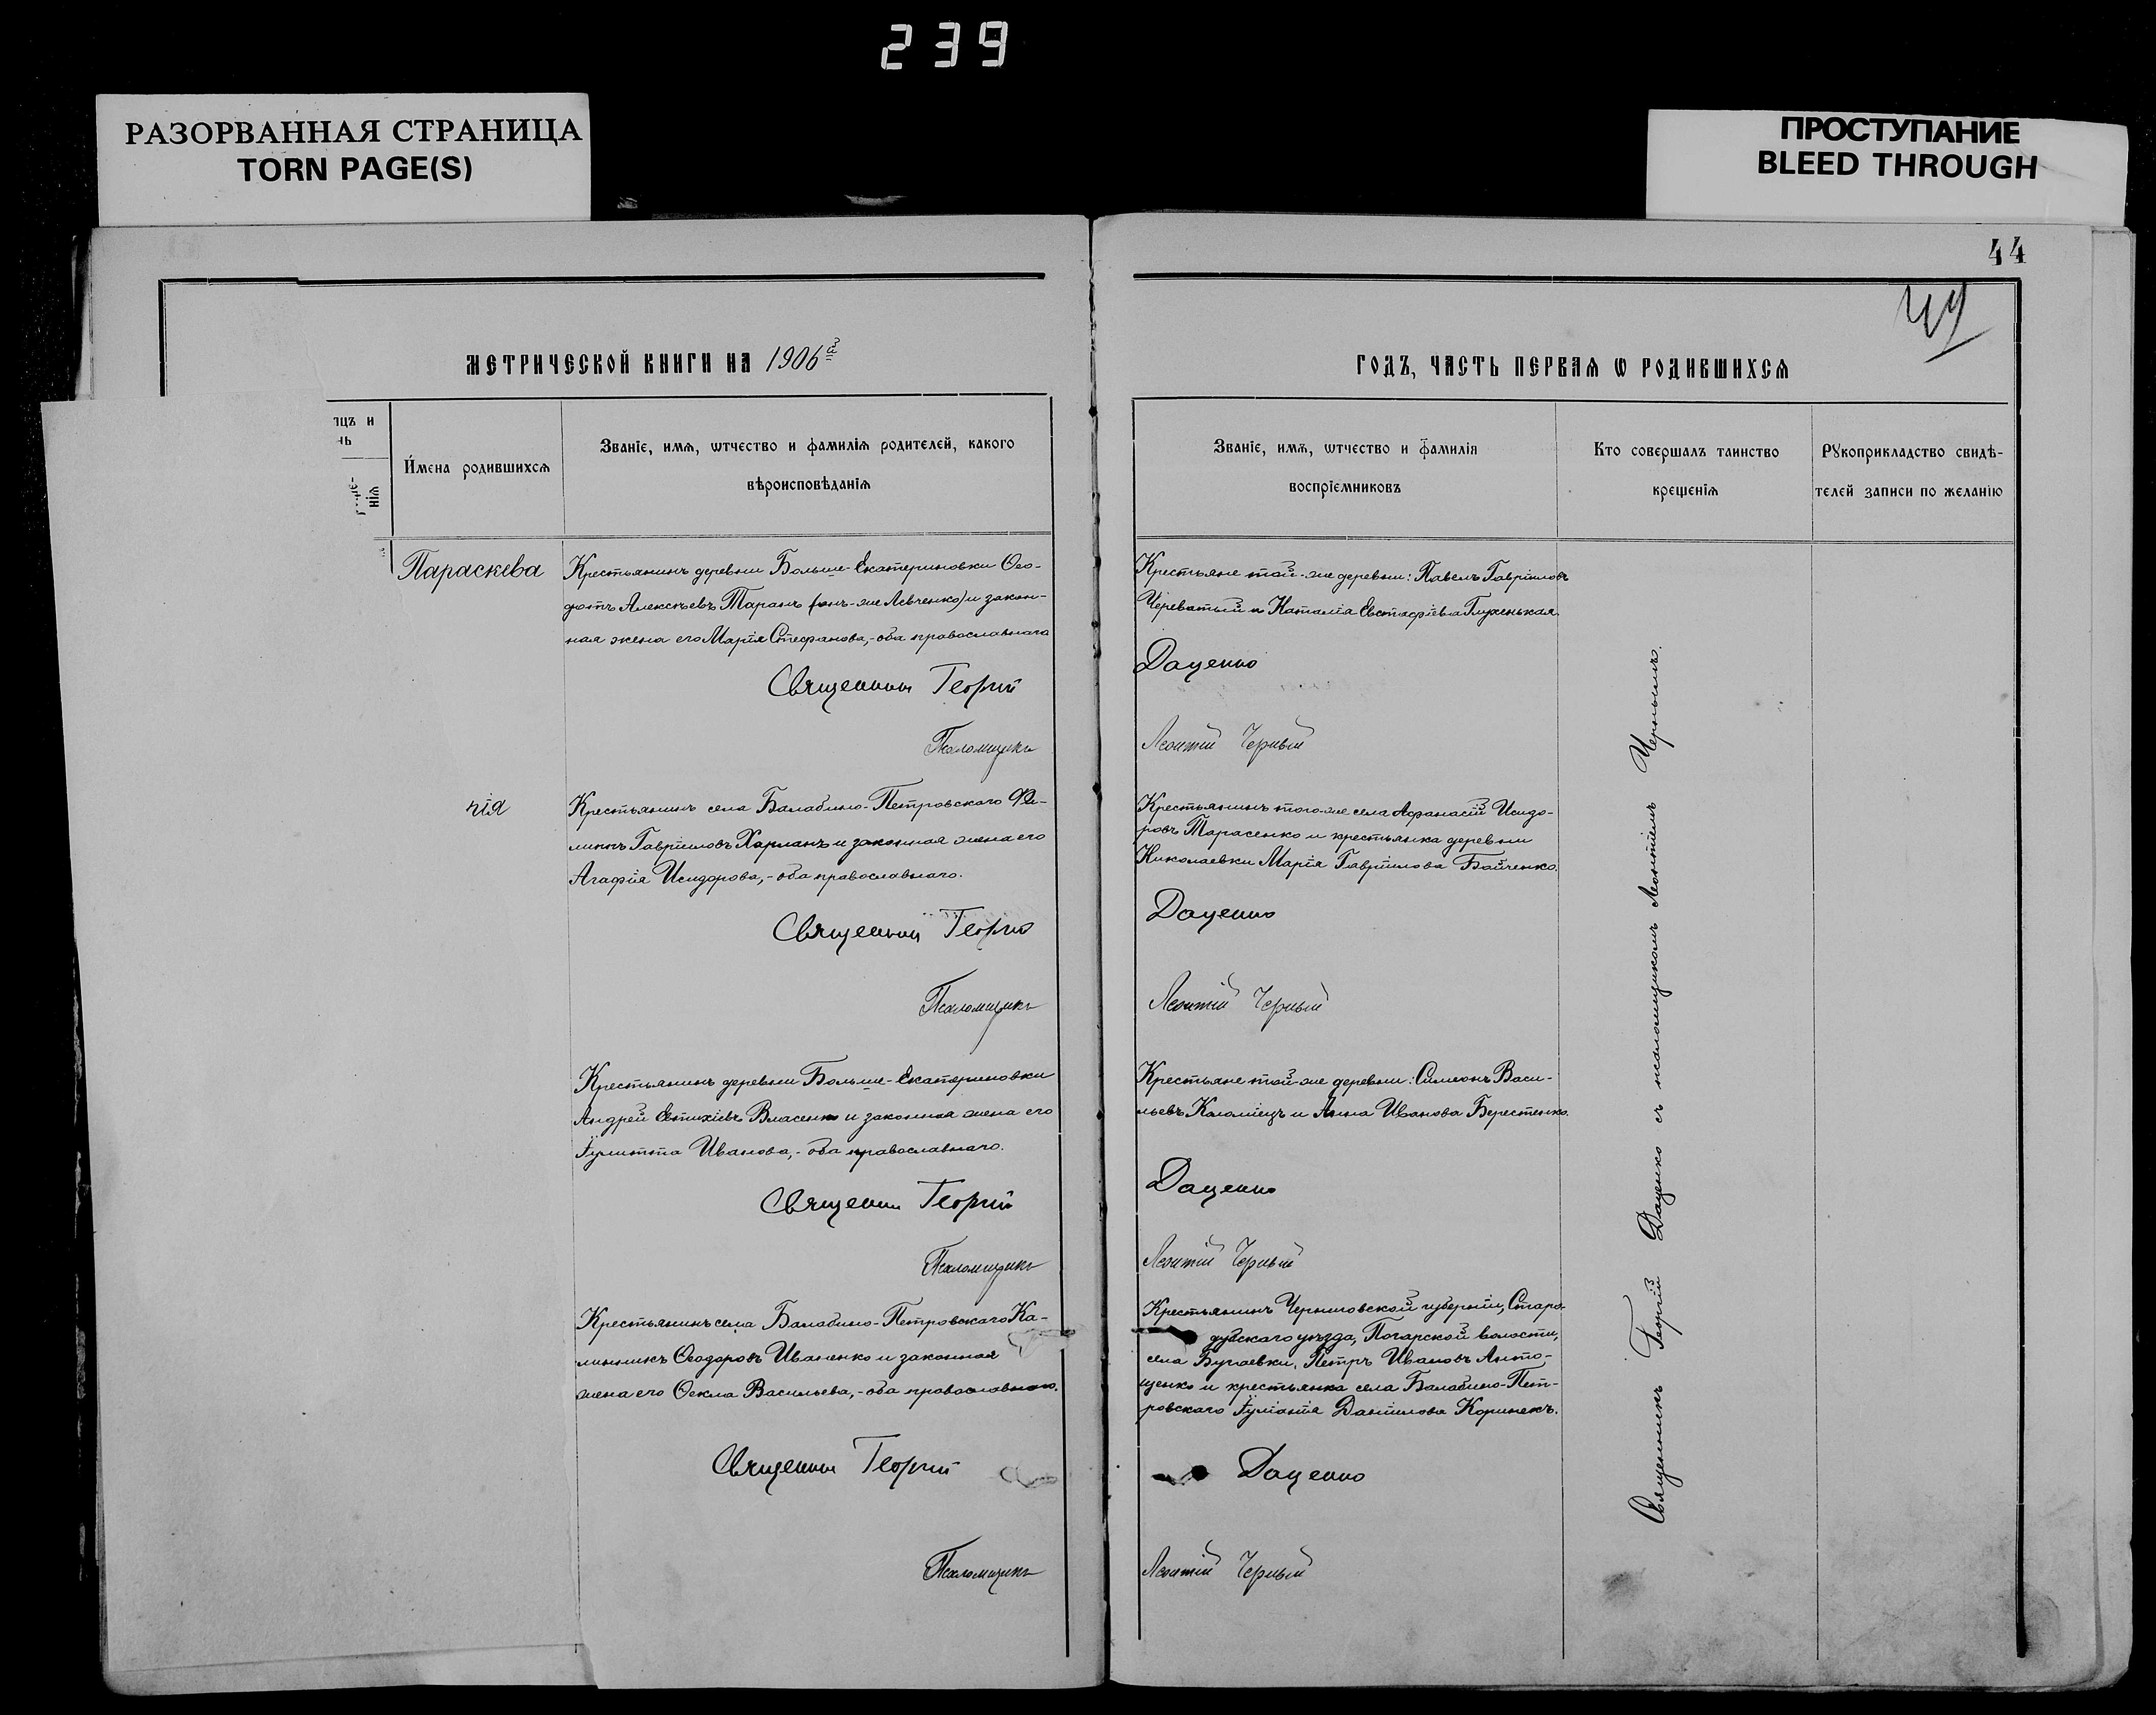 239
РАЗОРВАННАЯ СТРАНИЦА
TORN PAGE(S)
ПРОСТУПАНИЕ
BLEED THROUGH
44
МЕТРИЧЕСКОЙ КНИГИ НА 1906й
ГОДЪ, ЧАСТЬ ПЕРВАЯ Ѡ РОДИВШИХСЯ
Имена родившихсѧ
Званіе, имѧ, ѡтчество и фамиліѧ родителей, какого
вѣроисповѣданіѧ
Званіе, имѧ, ѡтчество и фамиліѧ
воспріемниковъ
Кто совершалъ таинство
крещеніѧ
Рꙋкоприкладство свидѣ-
телей записи по желанію
Параскева
Крестьянинъ деревни Больше-Екатериновки Ѳео-
дотъ Алексѣевъ Таранъ (онъ-же Левченко) и закон-
ная жена его Марія Стефанова,-оба православнаго
Священникъ Георгій
Псаломщикъ
Крестьяне той-же деревни: Павелъ Гавріиловъ
Череватый и Наталія Евстафіева Глуженькая
Даценко
Леонтій Черный
нія
Крестьянинъ села Балабино-Петровскаго Фи-
липпъ Гавріиловъ Харланъ и законная жена его
Агафія Исидорова,-оба православнаго.
Священникъ Георгій
Псаломщикъ
Крестьянинъ того-же села Афанасій Исидо-
ровъ Тарасенко и крестьянка деревни
Николаевки Марія Гавріилова Бойченко.
Даценко
Леонтій Черный
Крестьянинъ деревни Больше-Екатериновки
Андрей Евтихіевъ Власенко и законная жена его
Іулитта Иванова,-оба православнаго.
Священникъ Георгій
Псаломщикъ
Крестьяне той-же деревни: Симеонъ Васи-
льевъ Коломіецъ и Анна Иванова Берестенко.
Даценко
Леонтій Черный
Крестьянинъ села Балабино-Петровскаго Ка-
линникъ Ѳеодоровъ Иваненко и законная
жена его Ѳекла Васильева,-оба православнаго.
Священникъ Георгій
Псаломщикъ
Крестьянинъ Черниговской губерніи, Старо-
дубскаго уѣзда, Погарской волости,
села Бугаевки, Петръ Ивановъ Анто-
щенко и крестьянка села Балабино-Пет-
ровскаго Іуліанія Даніилова Коринекъ.
Даценко
Леонтій Черный
Священникъ Георгій Даценко съ псаломщикомъ Леонтіемъ Чернымъ.